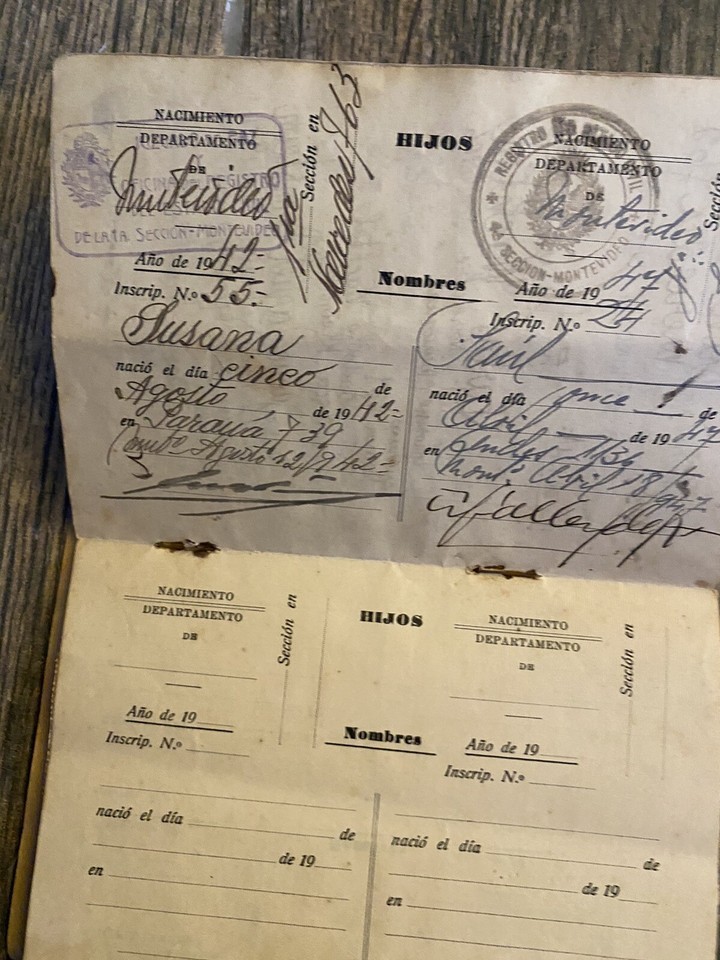 NACIMIENTO
DEPARTAMENTO
DE
Montevideo
OFICINA REGISTRO
DE LA 1A. SECCION-MONTEVIDEO
Año de 1942=
Inscrip. N.º 55=
Sección en
1ra
Mercedes 763
HIJOS
Nombres
Susana
nació el día cinco de
Agosto de 1942=
en Paraná 739
Agosto 12/942=
NACIMIENTO
DEPARTAMENTO
DE
Montevideo
REGISTRO CIVIL
4a SECCION-MONTEVIDEO
Año de 1947
Inscrip. N.º 24
Sección
nació el día once de
Abril de 1947
en 1136
Mont.º Abril 18 947
NACIMIENTO
DEPARTAMENTO
DE
Año de 19
Inscrip. N.º
Sección en
HIJOS
Nombres
nació el día de
de 19
en
NACIMIENTO
DEPARTAMENTO
DE
Año de 19
Inscrip. N.º
Sección en
nació el día de
de 19
en